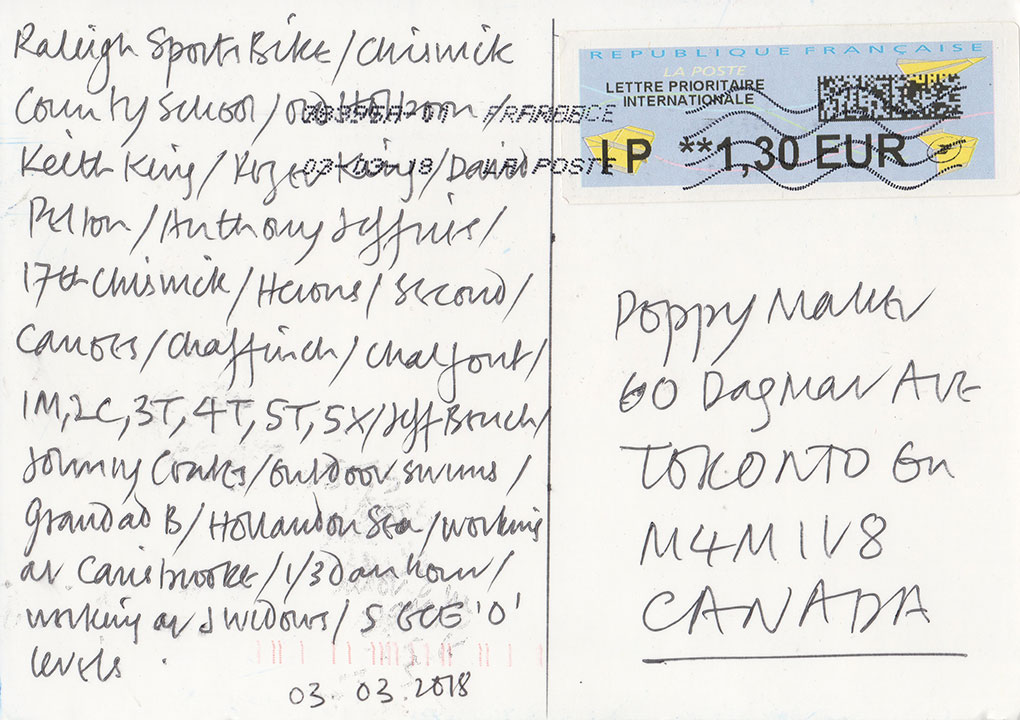 Raleigh Sports Bike / Chiswick
County School /
Keith King / Roger King / David
Pelton / Anthony Jeffries /
17th Chiswick / Herons / Second /
Canoes / Chaffinch / Chalfont /
1M, 2C, 3T, 4T, 5T, 5X / Jeff Bench /
Johnny Coates / Outdoor swims /
Grandad B / Holland on Sea / working
at Carisbrooke / 1/3D an hour /
working at J Widdows / 5 GCE 'O'
levels .
03. 03. 2018
REPUBLIQUE FRANÇAISE
LA POSTE
LETTRE PRIORITAIRE
INTERNATIONALE
IP **1,30 EUR
FRANCE
03-03-18 LA POSTE
Poppy Maker
60 Dagmar AVE
TORONTO On
M4M 1V8
CANADA